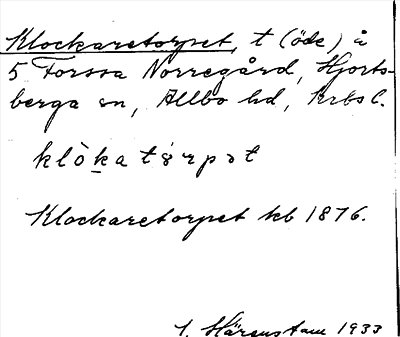 Klockaretorpet, t (öde) å
5 Forssa Norregård, Hjorts-
berga sn, Allbo hd, Krbs l.
klò̀ka tɵrpət
Klockaretorpet kb 1876.
J. Härenstam 1933